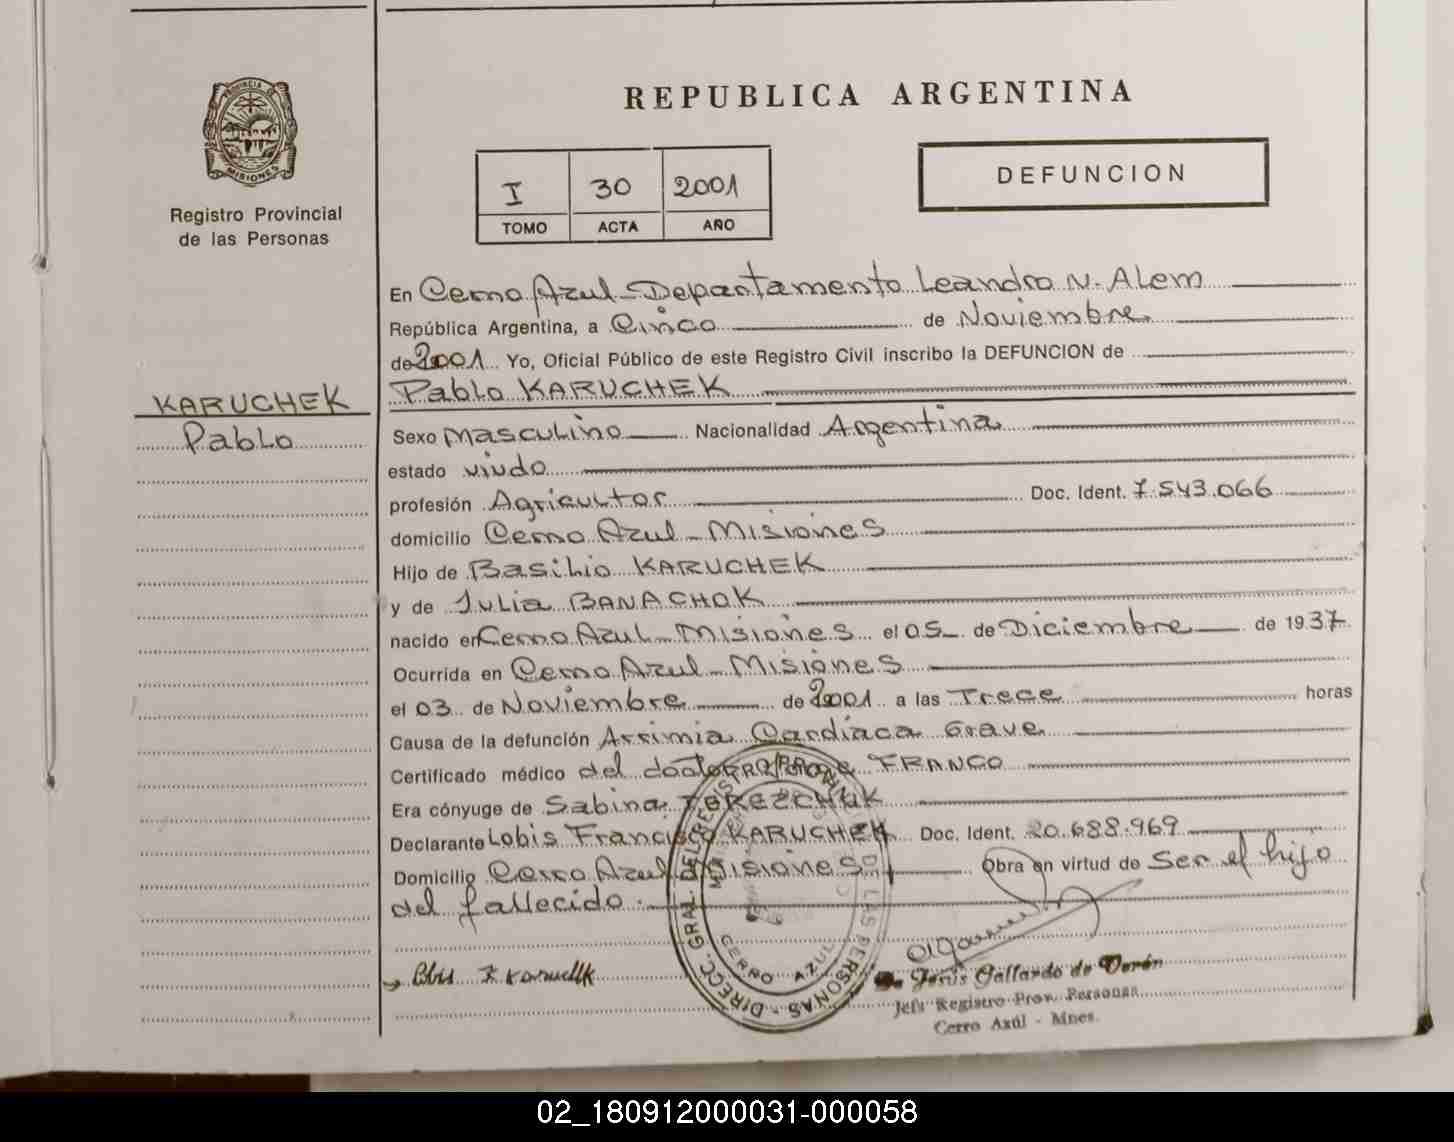 REPUBLICA ARGENTINA
PROVINCIA DE
MISIONES
Registro Provincial
de las Personas
I 30 2001
TOMO ACTA AÑO
DEFUNCION
KARUCHEK
Pablo
En Cerro Azul - Departamento Leandro N. Alem
República Argentina, a Cinco de Noviembre
de 2001 Yo, Oficial Público de este Registro Civil inscribo la DEFUNCION de
Pablo KARUCHEK
Sexo Masculino Nacionalidad Argentina
estado viudo
profesión Agricultor Doc. Ident. 7.543.066
domicilio Cerro Azul - Misiones
Hijo de Basilio KARUCHEK
y de Julia BANACHOK
nacido en Cerro Azul - Misiones el 05 de Diciembre de 1937
Ocurrida en Cerro Azul - Misiones
el 03 de Noviembre de 2001 a las Trece horas
Causa de la defunción Arrimia Cardíaca Grave
Certificado médico del doctor FRANCO
Era cónyuge de Sabina
Declarante Lobis Francisco KARUCHEK Doc. Ident. 20.688.969
Domicilio Cerro Azul Misiones Obra en virtud de Ser el hijo
del fallecido.
DIRECC. GRAL. DEL REGISTRO PROV. DE LAS PERSONAS -
CERRO AZUL
Jesús Gallardo de Verón
Jefe Registro Prov. Personas
Cerro Azúl - Mnes.
02_180912000031-000058